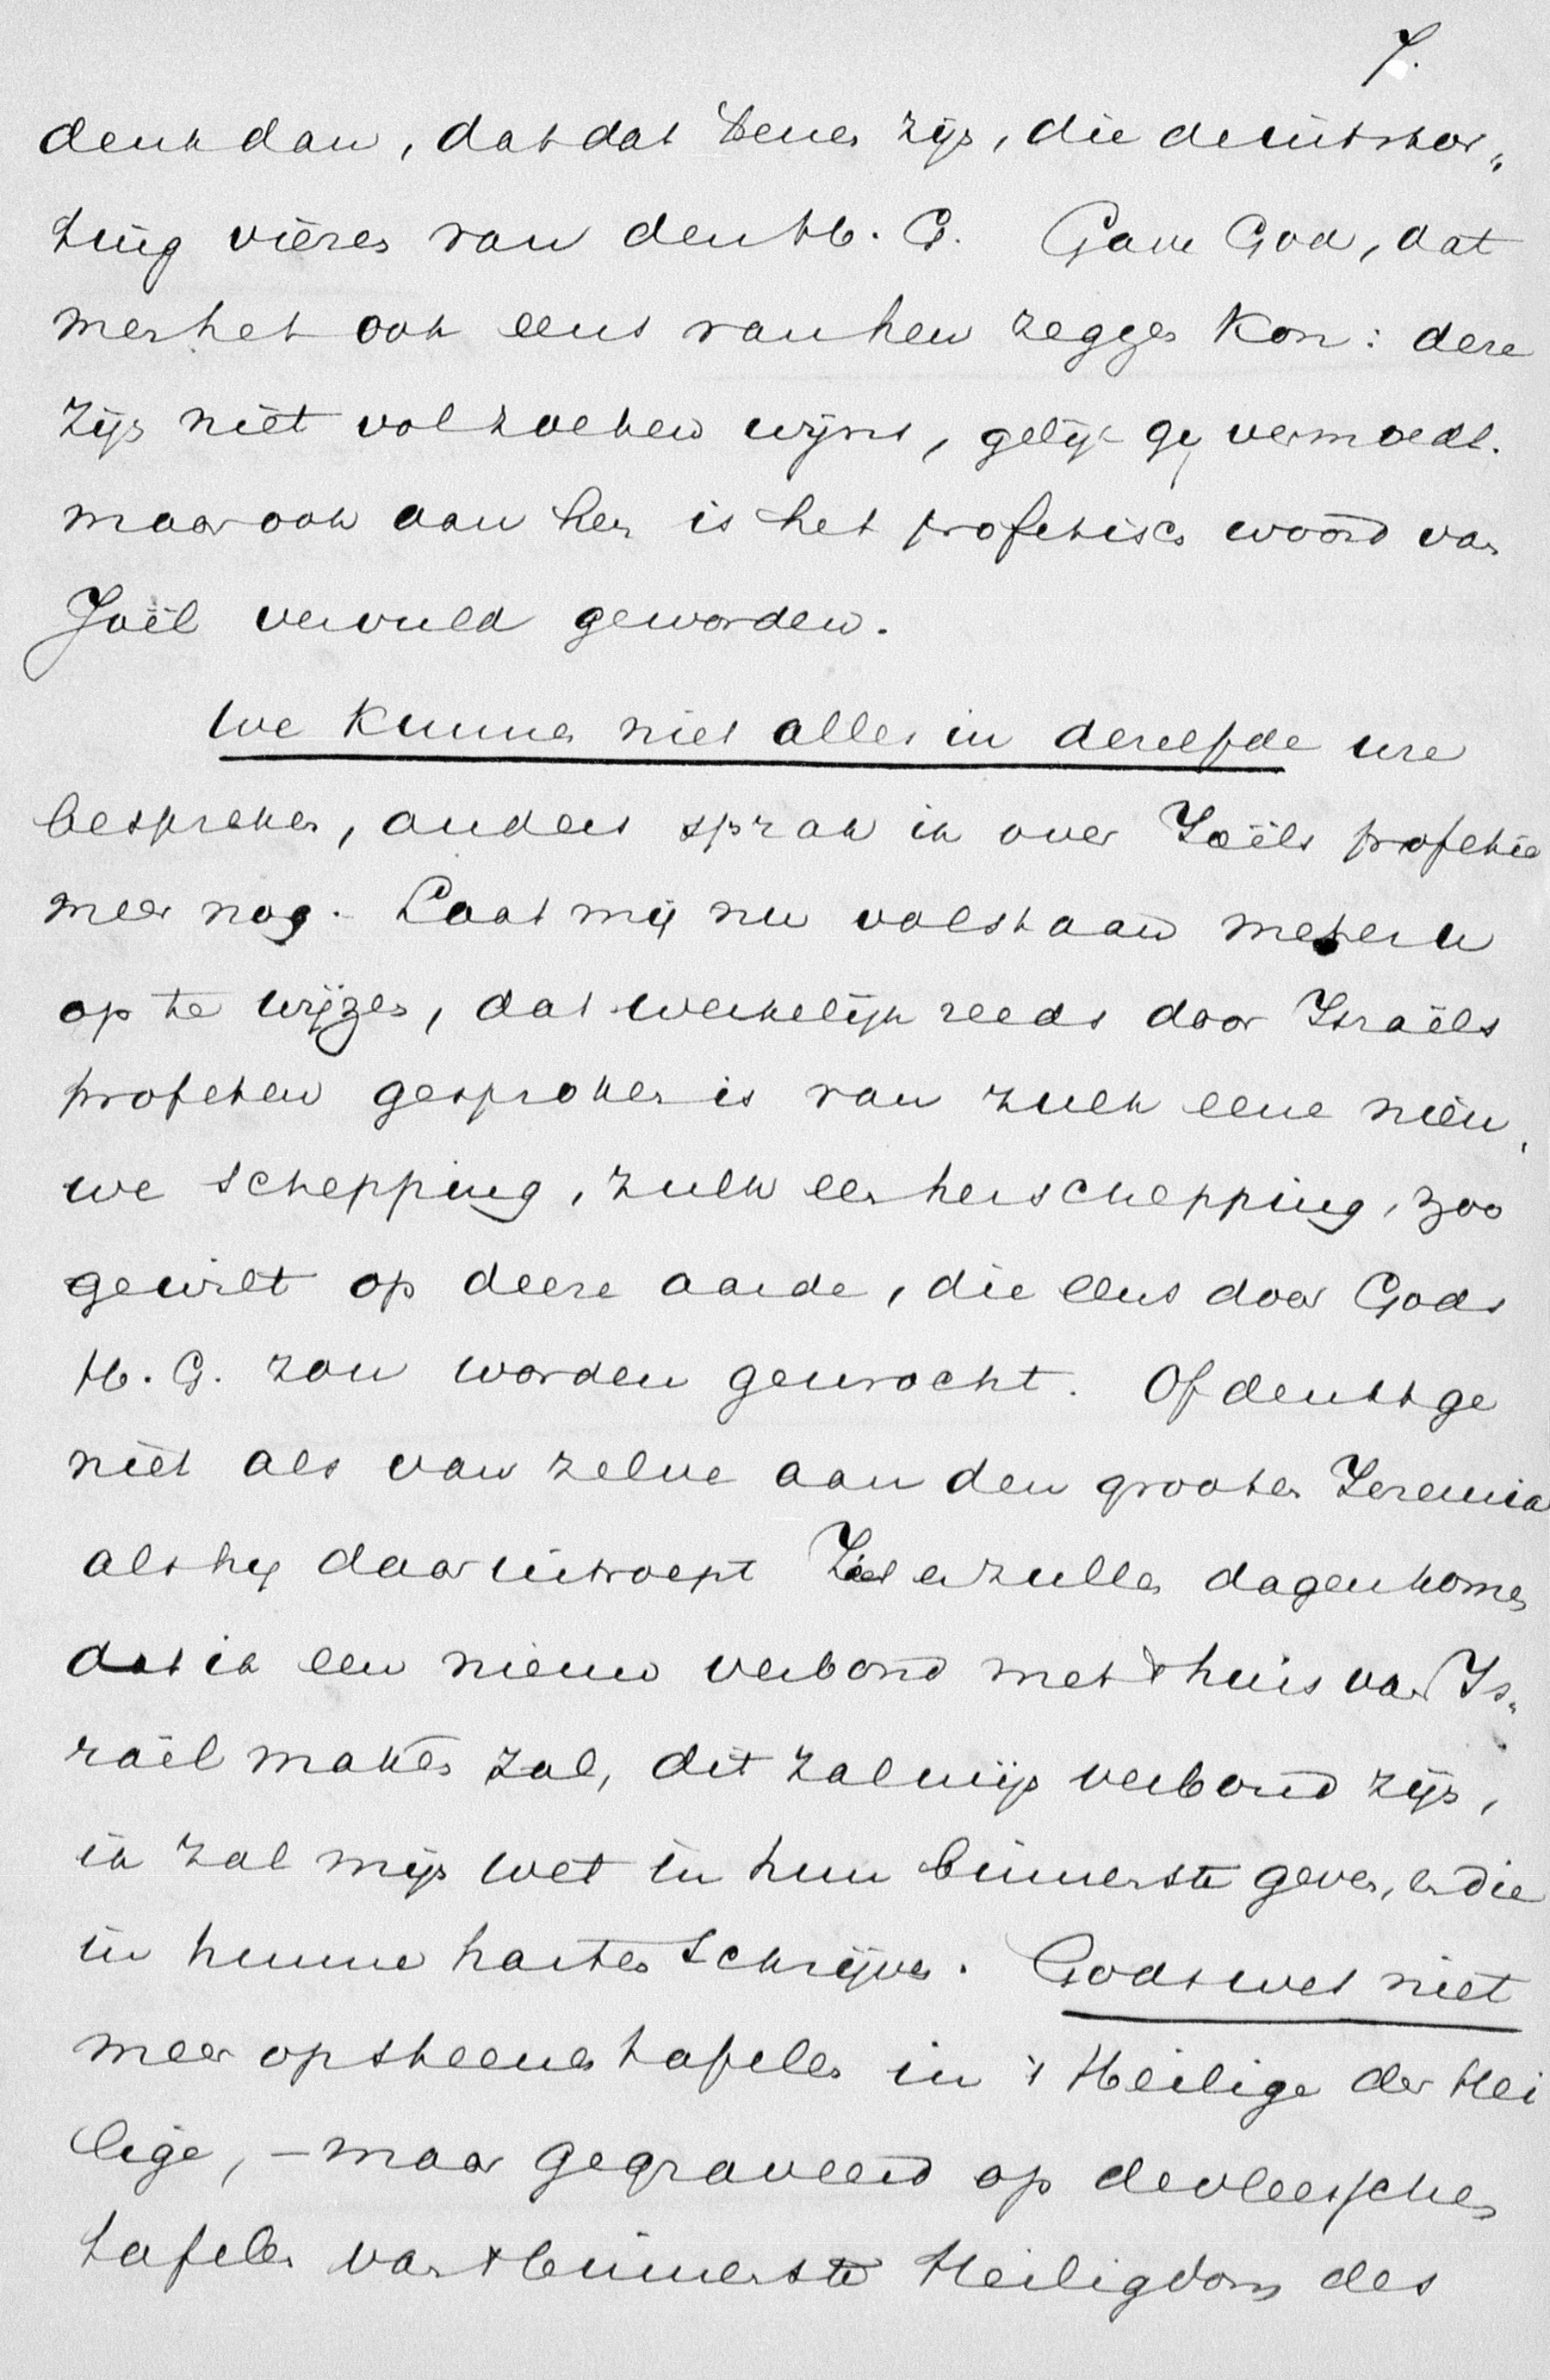 7.
denk dan, dat dat tenes zijn, die de uitstor„
ting vieren van den H. G. Gave God, dat
men het ook eens van hen zeggen kon: deze
zijn niet vol zoeten wijns, gelijk gij vermoedt.
maar ook aan hen is het profetisch woord van
Joël vervuld geworden.
We kunnen niet alles in dezelfde ure
bespreken, anders sprak ik over Joëls profetie
meer nog. Laat mij nu volstaan met er u
op te wijzen, dat werkelijk reeds door Israëls
profeten gesproken is van zulk eene nieu„
we schepping, zulk een herschepping, zoo
ge wilt op deze aarde, die eens door Gods
H. G. zou worden gewrocht. Of denkt ge
niet als van zelve aan den grooten Jeremia
als hij daar uitroept Ziet er zullen dagen komen
dat ik een nieuw verbond met 't huis van Is„
raël maken zal, dit zal mijn verbond zijn,
ik zal mijn wet in hun binnenste geven, en die
in hunne harten schrijven. Gods wet niet
meer op steenen tafelen in 't Heilige der Hei
lige, – maar gegraveerd op de vleeschen
tafelen van 't binnenste Heiligdom des